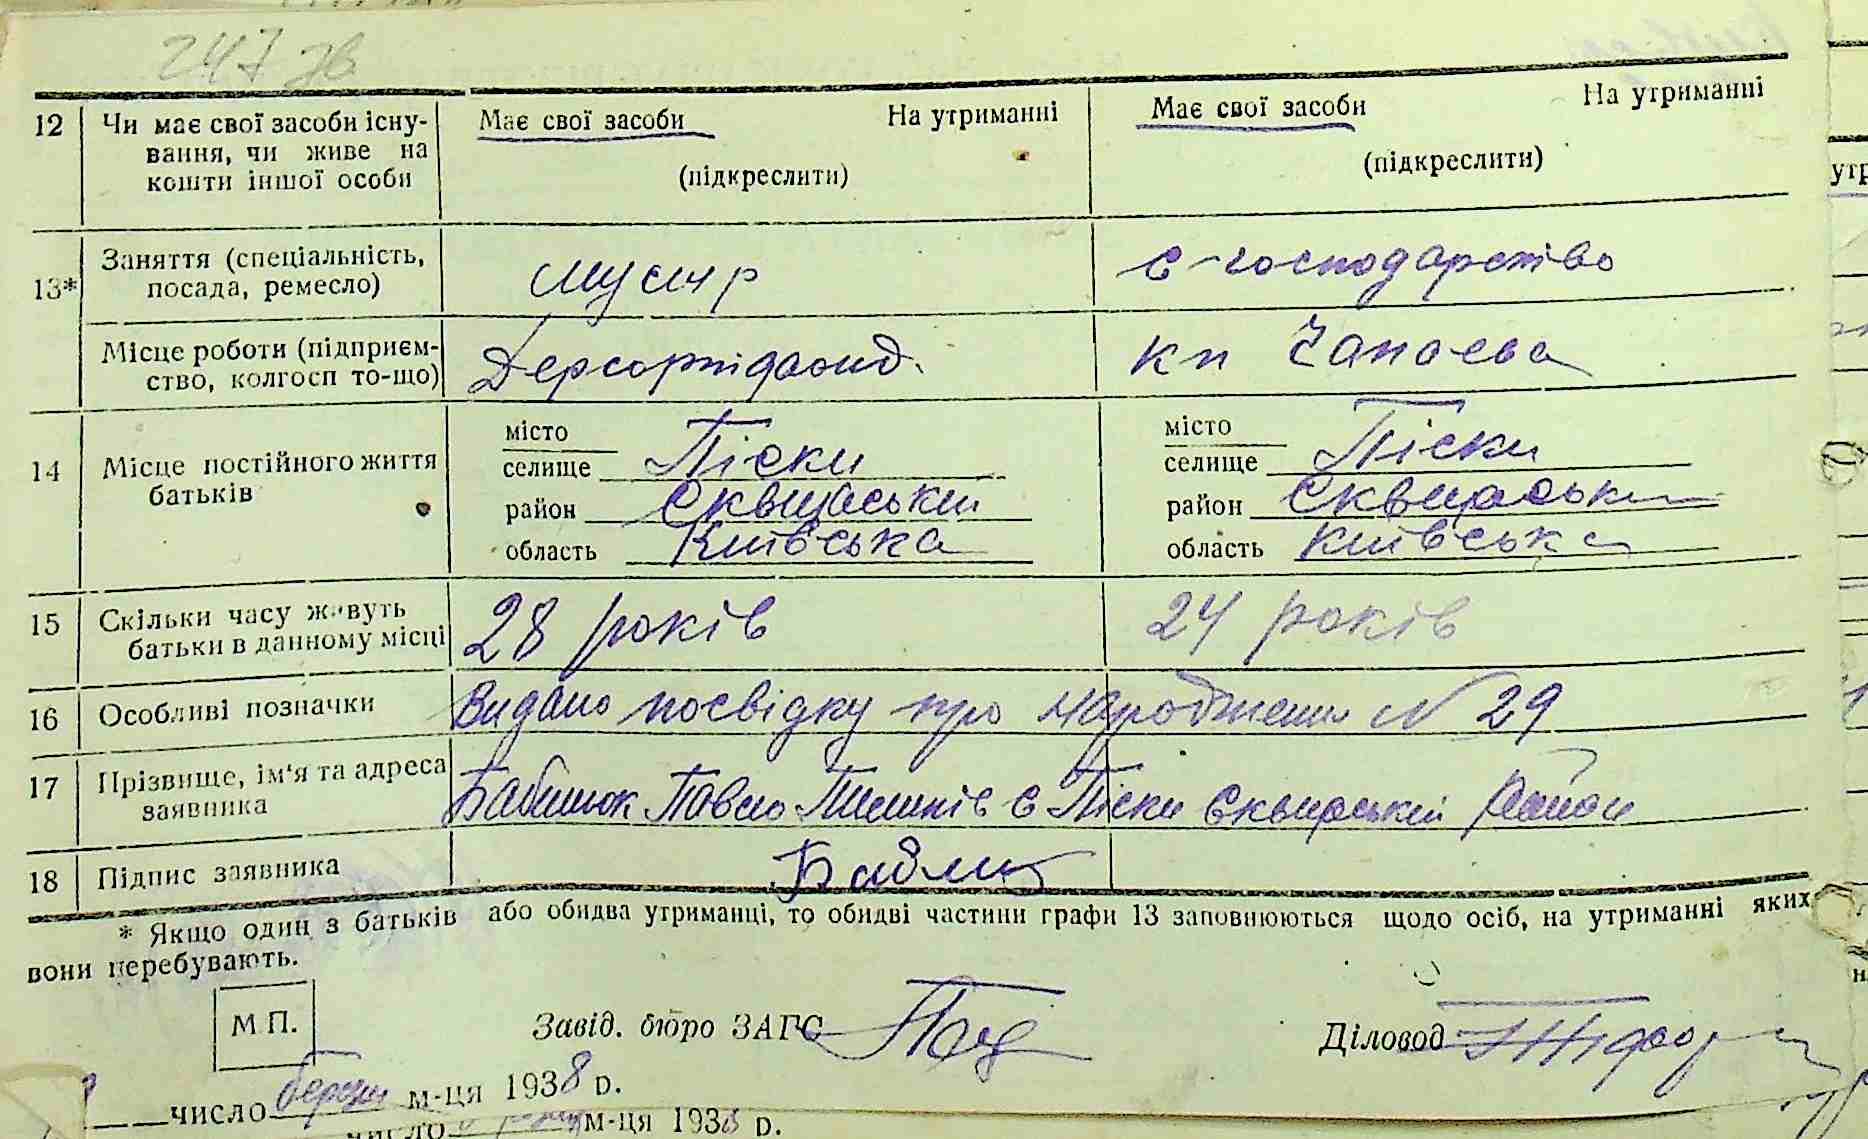 247 зв
12 Чи має свої засоби існу-
вання, чи живе на
кошти іншої особи
Має свої засоби На утриманні
(підкреслити)
Має свої засоби На утриманні
(підкреслити)
13* Заняття (спеціальність,
посада, ремесло)
с-господарство
Місце роботи (підприєм-
ство, колгосп то-що)
кп Чапаєва
14 Місце постійного життя
батьків
місто
селище Піски
район Сквирський
область Київська
місто
селище Піски
район Сквирськи
область Київська
15 Скільки часу живуть
батьки в данному місці
28 років
24 років
16 Особливі позначки
Видано посвідку про народження N 29
17 Прізвище, ім'я та адреса
заявника
Павло с Піски Сквирський Район
18 Підпис заявника
* Якщо один з батьків або обидва утриманці, то обидві частини графи 13 заповнюються щодо осіб, на утриманні яких
вони перебувають.
М П.
Завід. бюро ЗАГС
Діловод
число березня м-ця 1938 р.
число м-ця 1938 р.